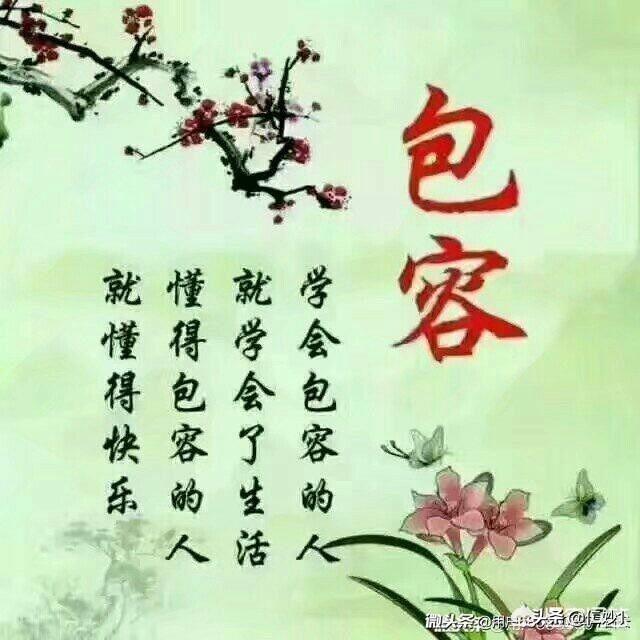 包容
学会包容的人
就学会了生活
懂得包容的人
就懂得快乐
微头条
头条